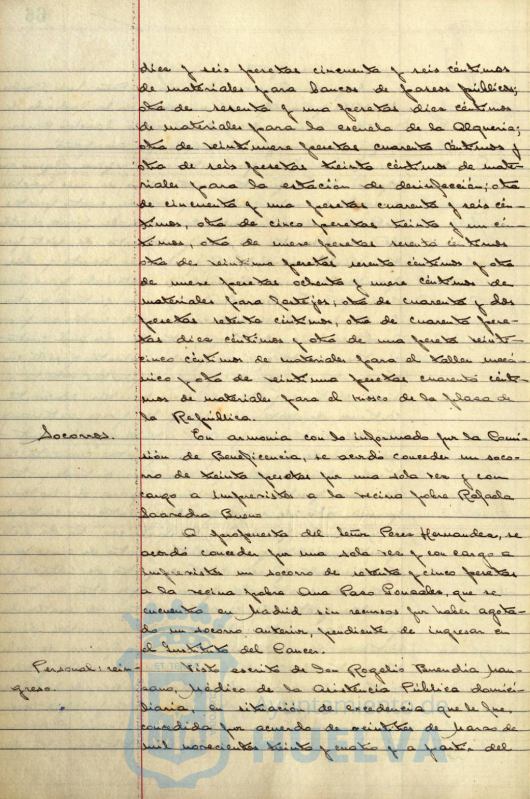 diez y seis pesetas cincuenta y seis céntimos
de materiales para bancos de paseos públicos;
otra de sesenta y una pesetas diez céntimos
de materiales para la escuela de la Alquería;
otra de veintinueve pesetas cuarenta céntimos y
otra de seis pesetas treinta céntimos de mate-
riales para la estación de desinfección; otra
de cincuenta y una pesetas cuarenta y seis cén-
timos, otra de cinco pesetas treinta y un cén-
timos, otra de nueve pesetas sesenta céntimos
otra de veintiuna pesetas sesenta céntimos y otra
de nueve pesetas ochenta y nueve céntimos de
materiales para festejos; otra de cuarenta y dos
pesetas setenta céntimos, otra de cuarenta pese-
tas diez céntimos y otra de una peseta veinti-
cinco céntimos de materiales para el taller mecá-
nico y otra de veintiuna pesetas cuarenta cénti-
mos de materiales para el kiosco de la plaza de
la República.
Socorros. En armonía con lo informado por la Comi-
sión de Beneficencia, se acordó conceder un soco-
rro de treinta pesetas por una sola vez y con
cargo a imprevistos a la vecina pobre Rafaela
Saavedra Bueno
A propuesta del Señor Pérez Hernández, se
acordó conceder por una sola vez y con cargo a
imprevistos un socorro de setenta y cinco pesetas
a la vecina pobre Ana Paso González, que se
encuentra en Madrid sin recursos por haber agota-
do un socorro anterior, pendiente de ingresar en
el Instituto del Cancer.
Personal: rein- Visto escrito de Don Rogelio Buendía Man-
greso. zano, Médico de la Asistencia Pública domici-
liaria, en situación de excedencia que le fue
concedida por acuerdo de veintitres de Marzo de
mil novecientos treinta y cuatro y a partir del
Ayuntamiento de
HUELVA